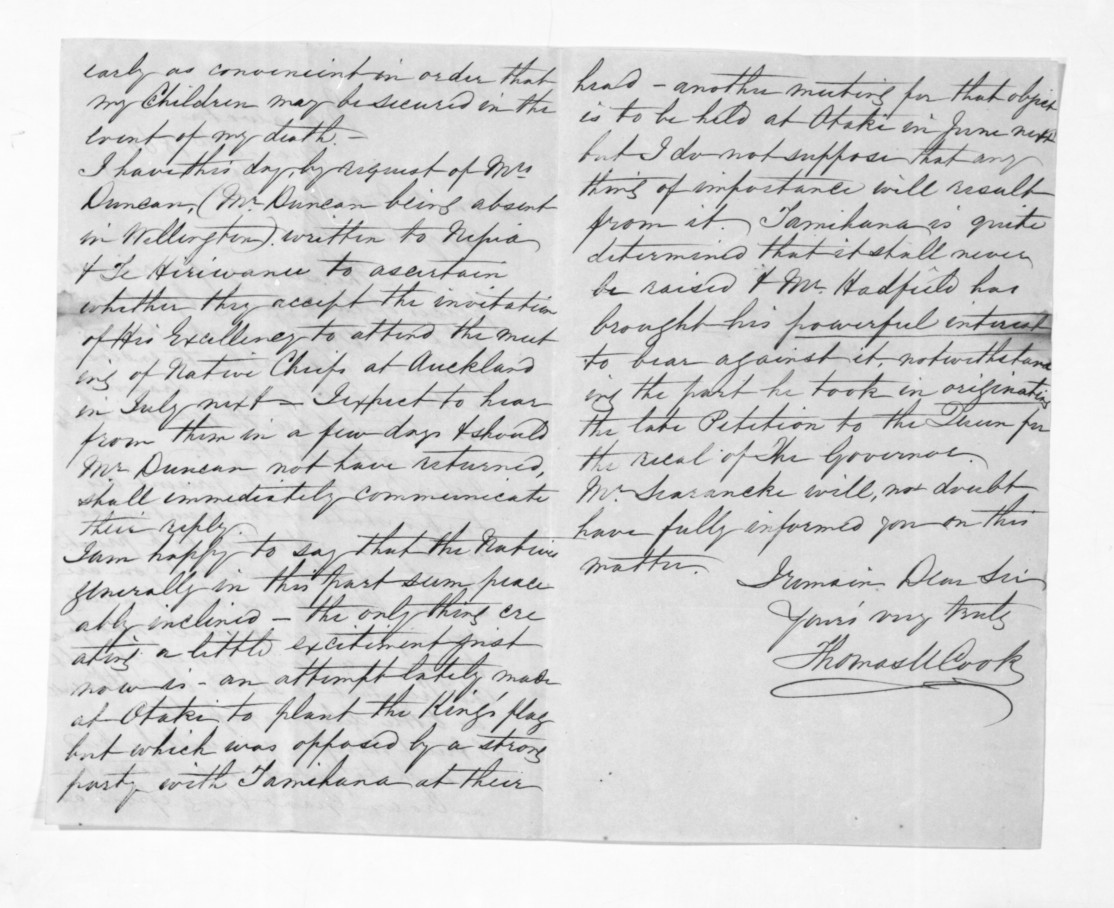 early as convenient in order that
my Children may be secured in the
event of my death. –
I have this day, by request of Mrs
Duncan, (Mr. Duncan being absent
in Wellington). written to Nepia
& Te Hiriwanu to ascertain
whether they accept the invitation
of His Excellency to attend the meet
ing of Native Chiefs at Auckland
in July next – I expect to hear
from them in a few days & should
Mr. Duncan not have returned,
shall immediately communicate
their reply.
I am happy to say that the Natives
generally in this part seem peace
ably inclined – the only thing cre
ating a little excitement just
now is – an attempt lately made
at Otaki to plant the King's flag
but which was opposed by a strong
party with Tamihana at their
head – another meeting for that object
is to be held at Otaki in June next
but I do not suppose that any
thing of importance will result
from it. Tamihana is quite
determined that it shall never
be raised & Mr. Hadfield has
brought his powerful interest
to bear against it, notwithstand
ing the part he took in originating
the late Petition to the Queen for
the recal of The Governor.
Mr. Searancke will, no doubt
have fully informed you on this
matter.
I remain Dear Sir
Your's very truly
Thomas U Cook